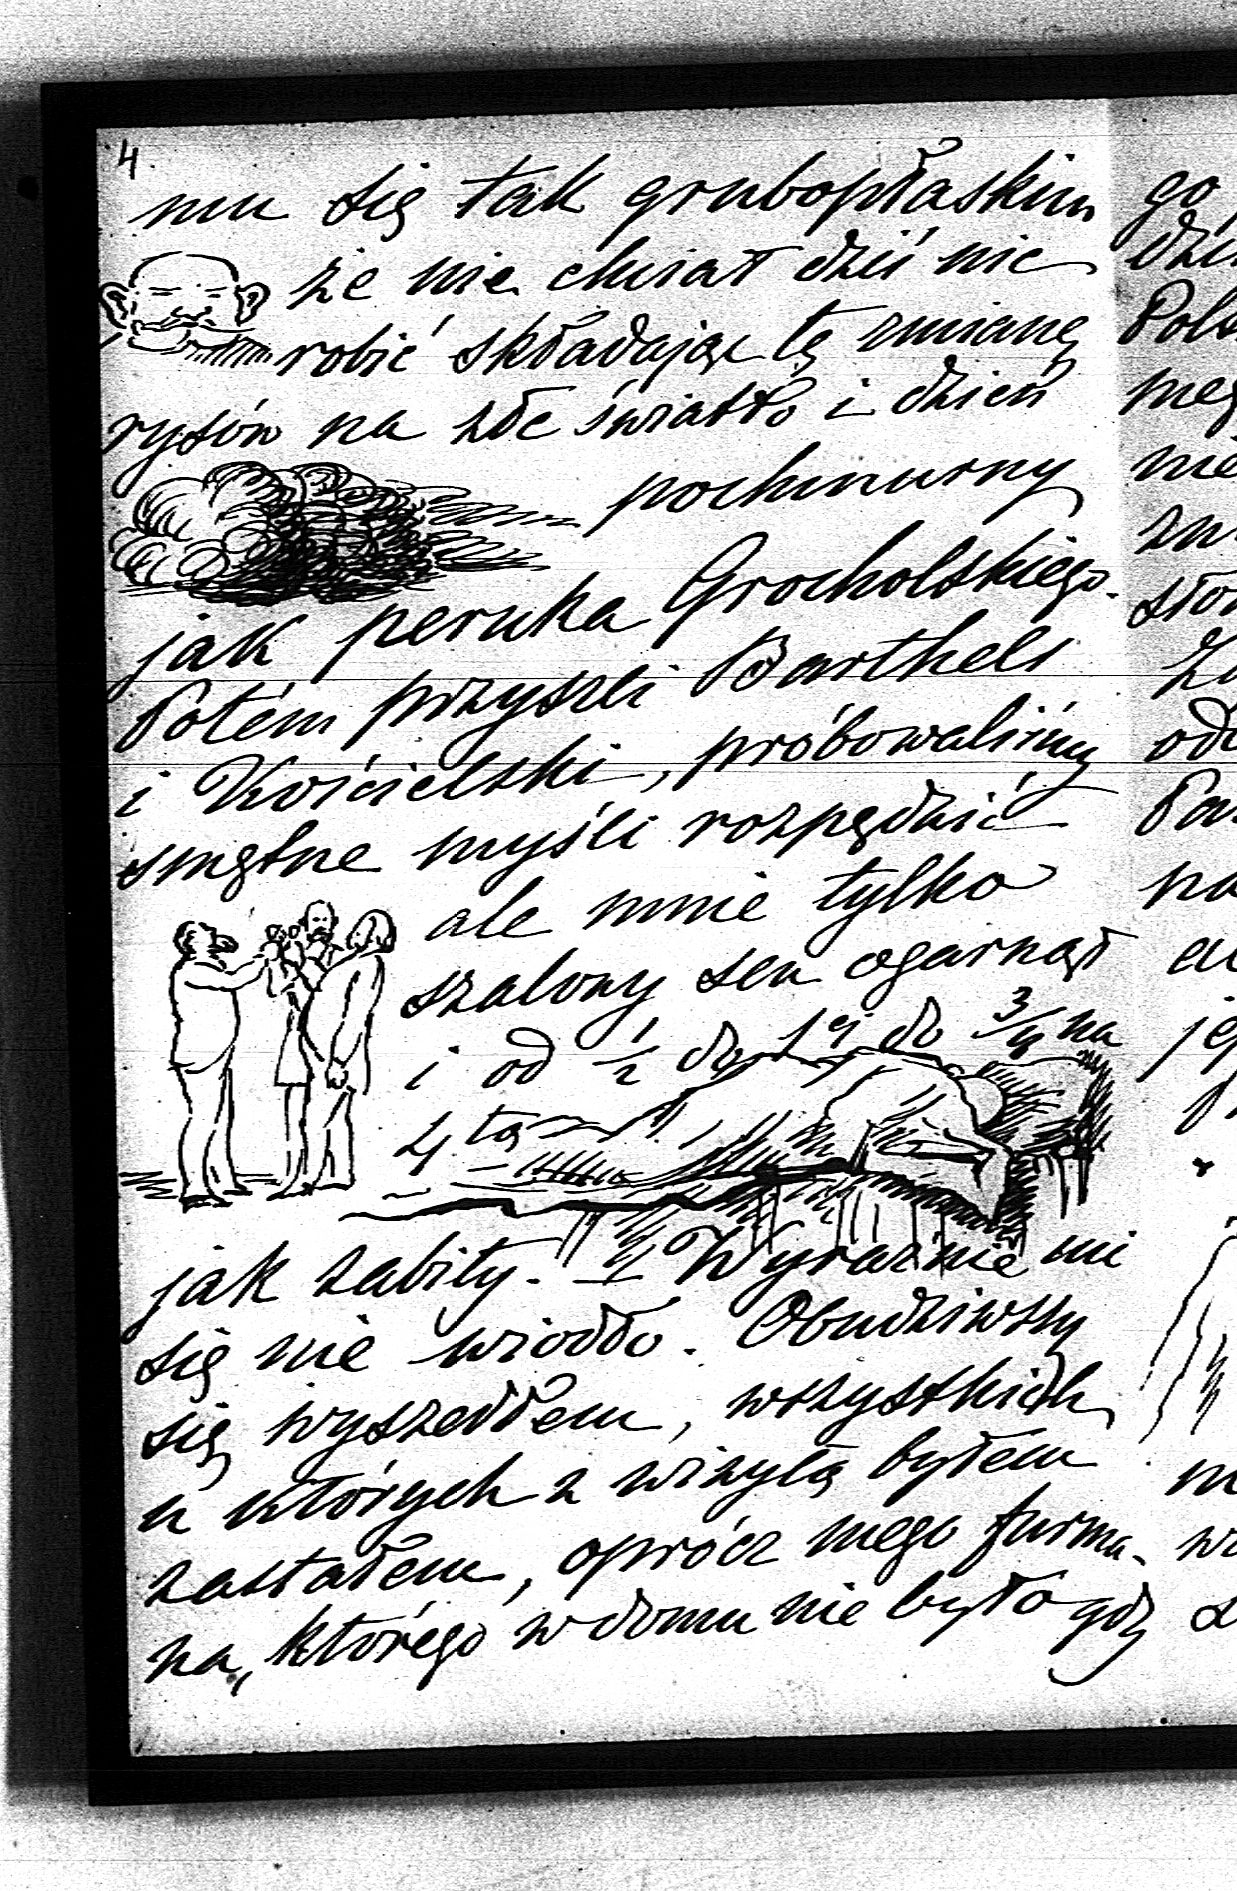 4.
mu się tak grubopłaskim
że nie chciał dziś nic
robić składając tę zmianę
rysów na złe światło i dzień
pochmurny
jak peruka Grocholskiego.
Potém przyszli Barthels
i Kościelski, próbowaliśmy
smętne myśli rozpędzić
ale mnie tylko
szalony sen ogarnął
i od ½ do 1éj do ¾ na
4tą
jak zabity. — Wyraźnie mi
się nie wiodło. Obudziwszy
się wyszedłem, wszystkich
u których z wizytą byłem
zastałem, oprócz mego furma-
na, którégo w domu nie było gdy